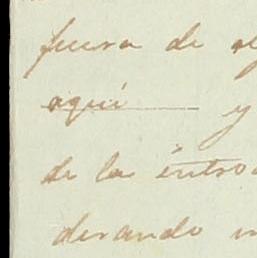 fuera de
aquí y
de la introd
derando